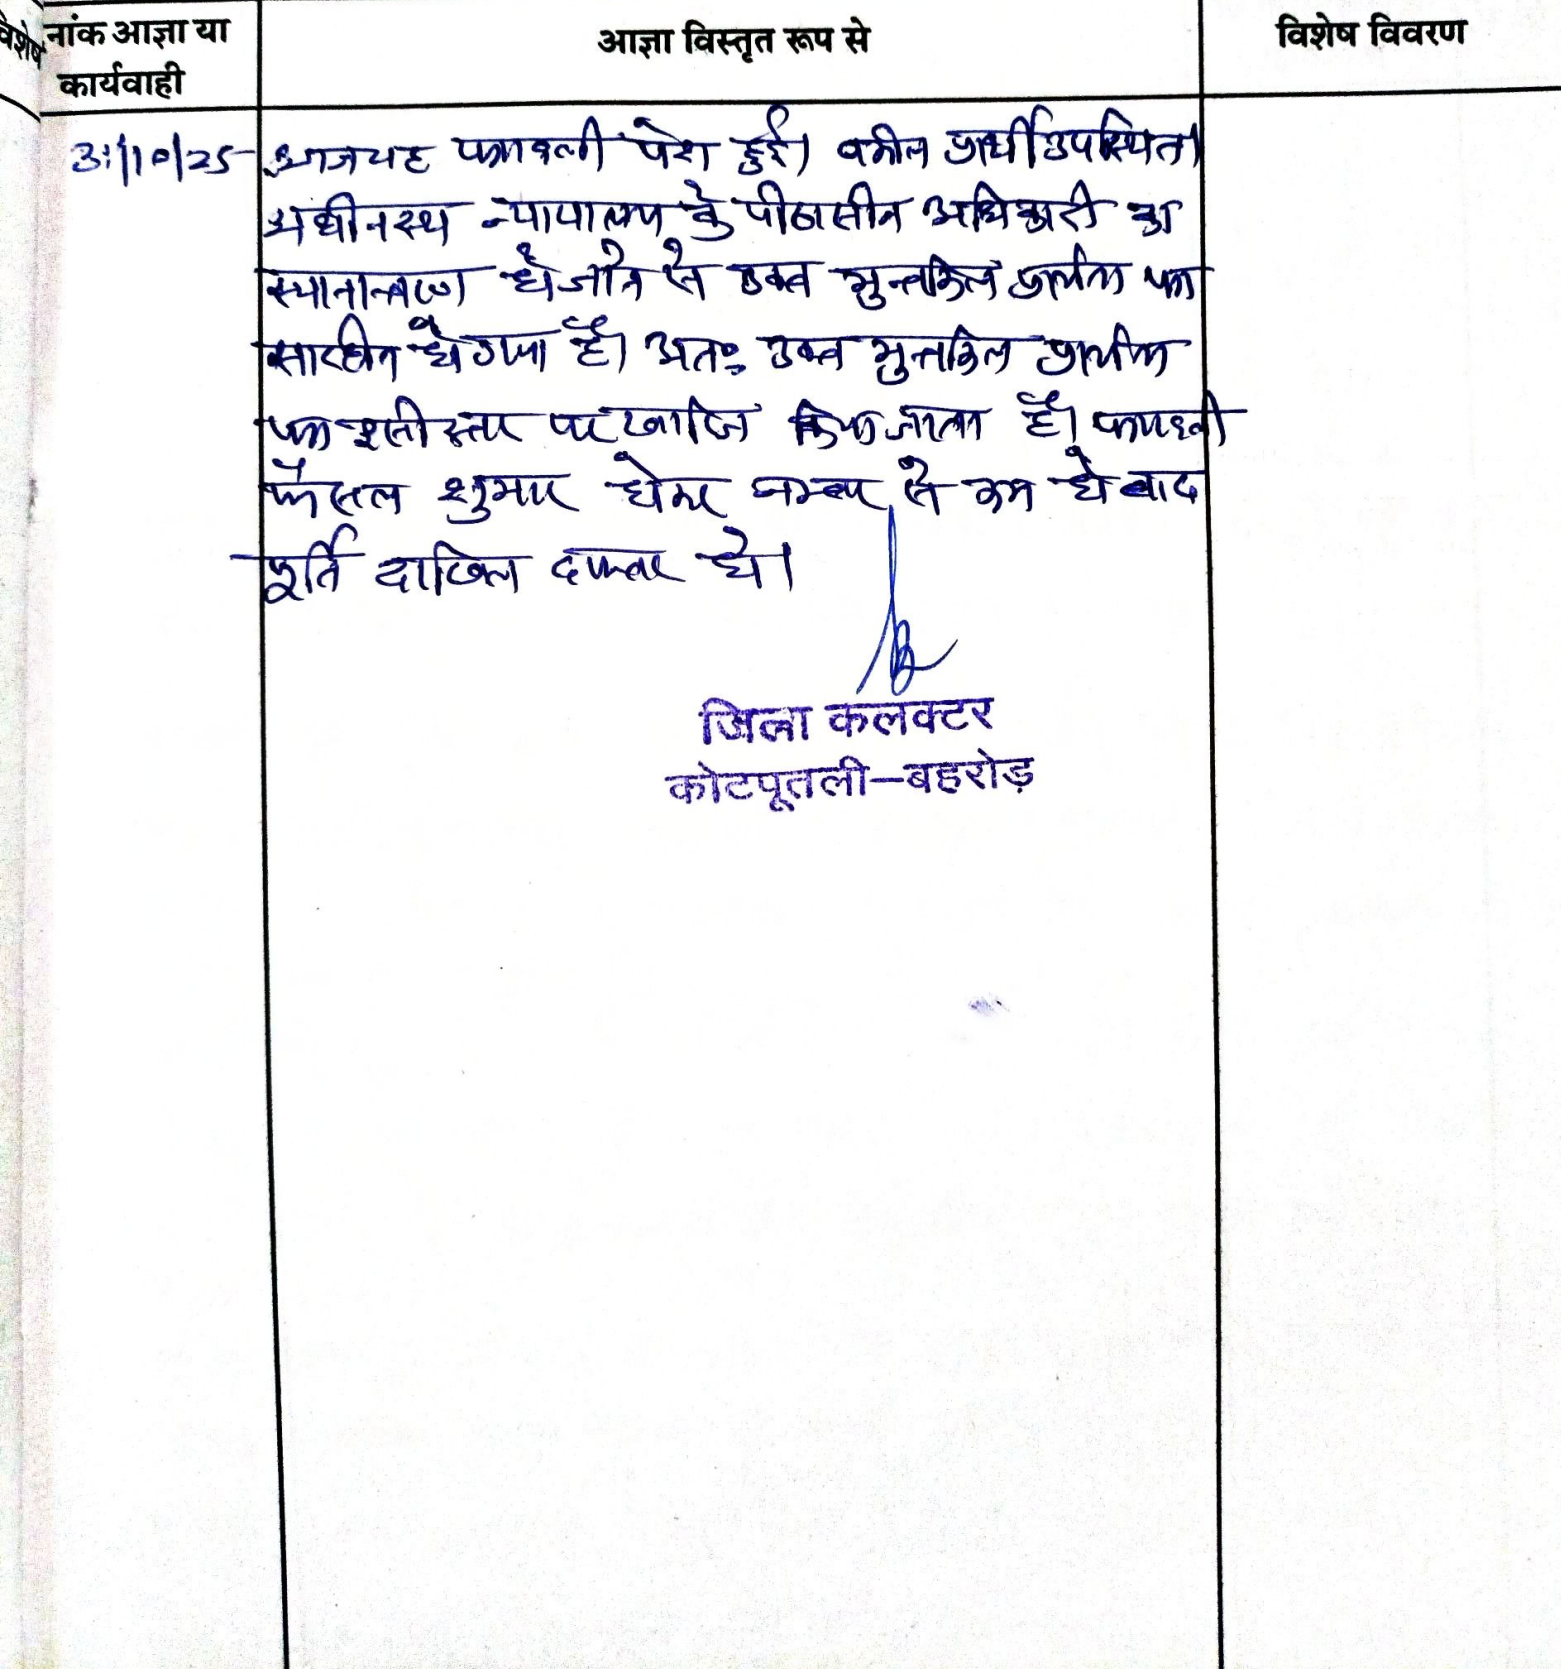 विशेष
नांक आज्ञा या
कार्यवाही
आज्ञा विस्तृत रूप से
विशेष विवरण
31/10/25
आज यह पत्रावली पेश हुई। वकील प्रार्थी उपस्थित।
अधीनस्थ न्यायालय के पीठासीन अधिकारी का
स्थानान्तरण हो जाने से उक्त मुन्तकिल प्रार्थना पत्र
सारहीन हो गया है। अतः उक्त मुन्तकिल प्रार्थना
पत्र इसी स्तर पर खारिज किया जाता है। पत्रावली
फैसल शुमार होकर नम्बर से कम हो बाद
पूर्ति दाखिल दफ्तर हो।
जिला कलक्टर
कोटपूतली–बहरोड़